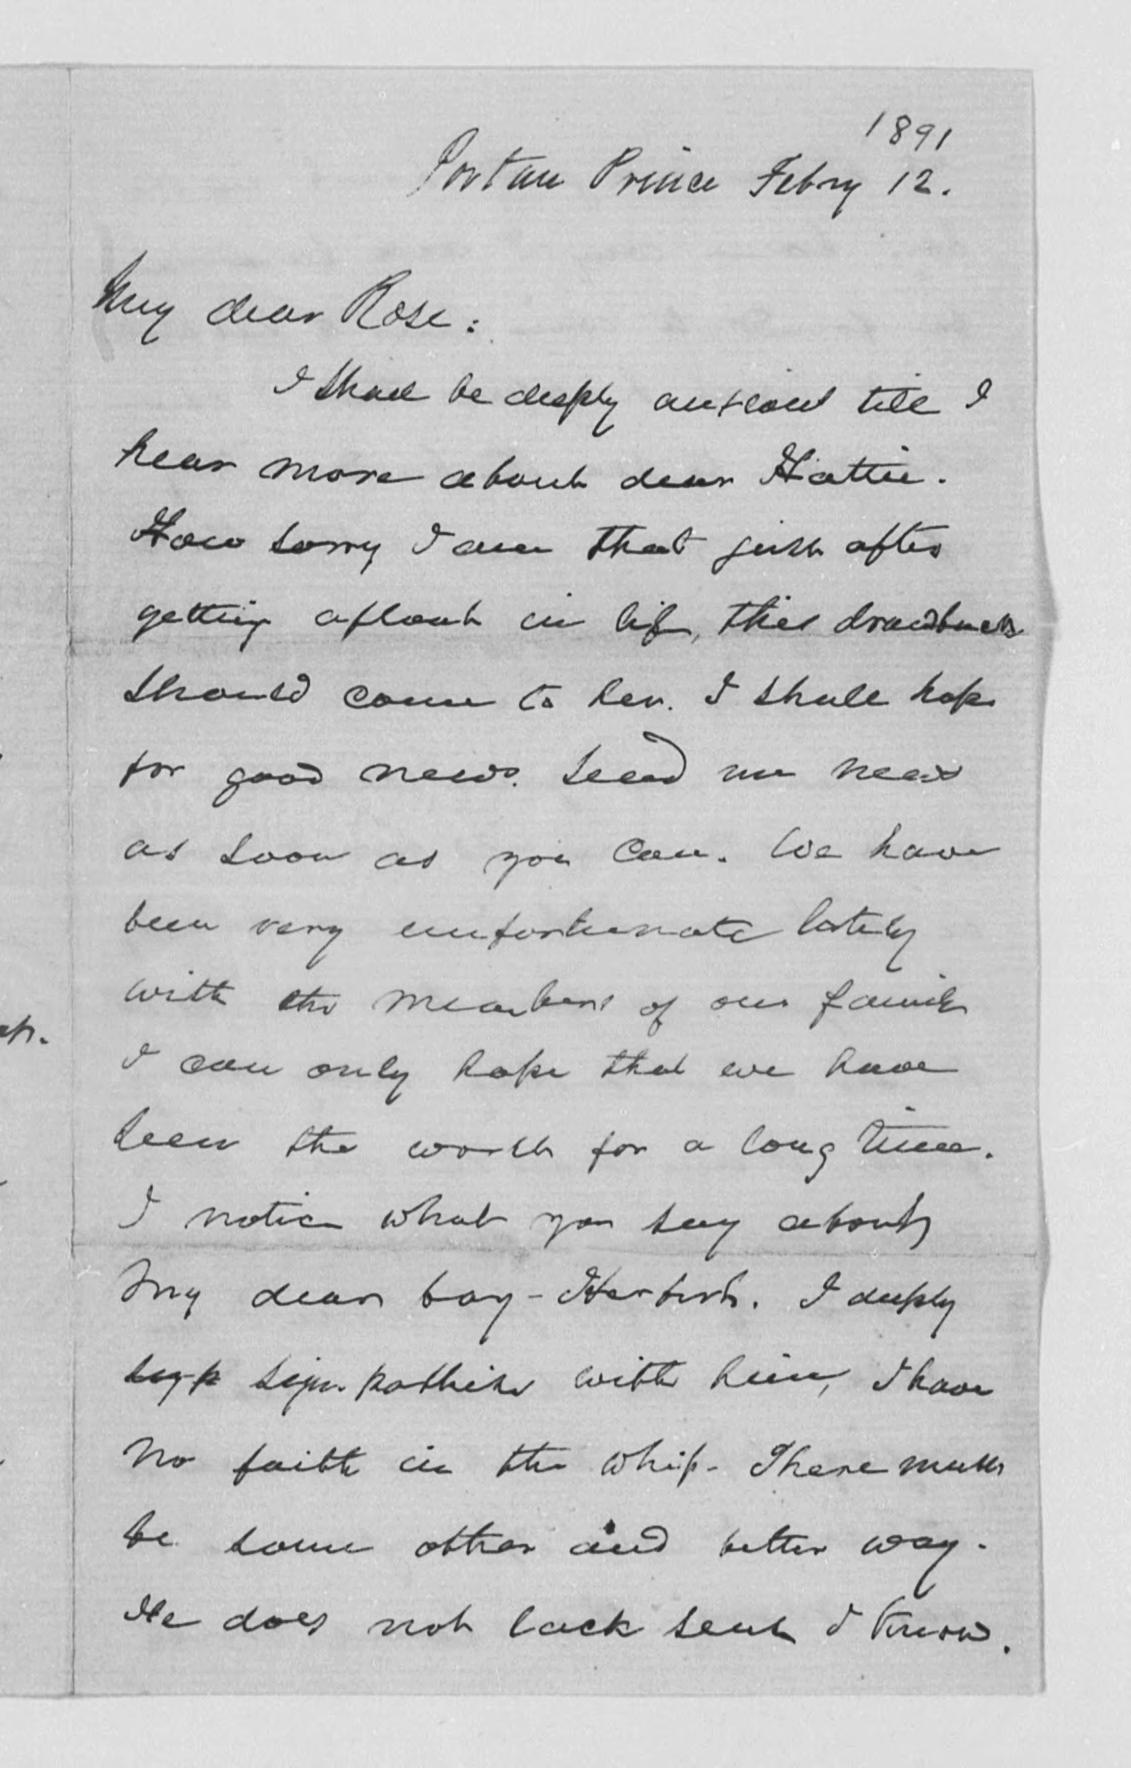 1891
Port au Prince Febry 12.
My dear Rose:
I shall be deeply anxious till I
hear more about dear Hattie.
How sorry I am that just after
getting afloat in life, this drawback
should come to her. I shall hope
for good news. Send me news
as soon as you can. We have
been very unfortunate lately
with the members of our family
I can only hope that we have
seen the worst for a long time.
I notice what you say about
my dear boy - Herbert. I deeply
symp sympathise with him, I have
no faith in the whip - There must
be some other and better way.
He does not lack sense I know.